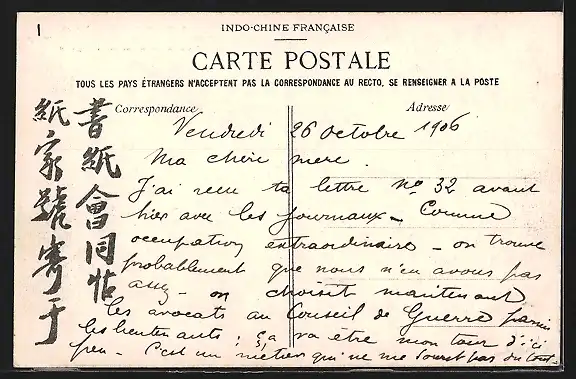 1
INDO-CHINE FRANÇAISE
CARTE POSTALE
TOUS LES PAYS ÉTRANGERS N'ACCEPTENT PAS LA CORRESPONDANCE AU RECTO, SE RENSEIGNER A LA POSTE
Correspondance
Adresse
書紙會同帖
紙家號寄于
Vendredi 26 octobre 1906
Ma chère mere.
J'ai reçu ta lettre nº 32 avant
hier avec les journaux - Comme
occupation extraordinaire - on trouve
probablement que nous n'en avons pas
assez - on choisit maintenant
les avocats au Conseil de Guerre parmi
les lieutenants ; ça va être mon tour d'ici
peu - C'est un métier qui ne me sourit pas du tout.